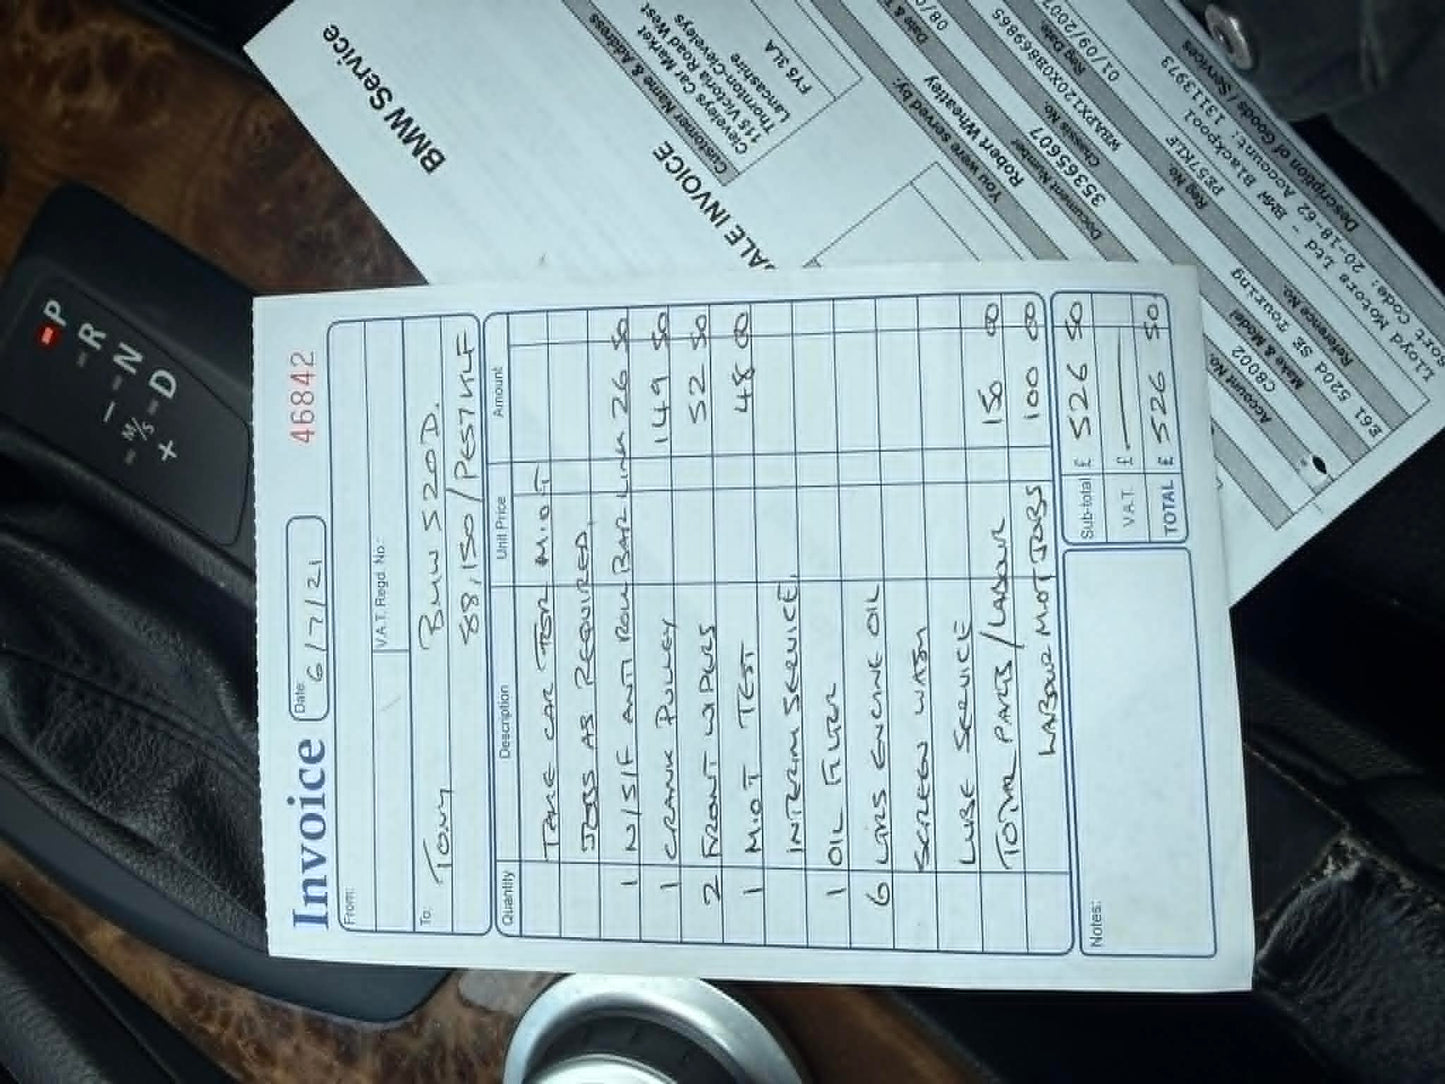 Invoice
Date:
6/7/21
46842
From:
V.A.T. Regd. No.:
To:
Tony BMW 520D.
88,150/PE57KLF
Quantity Description Unit Price Amount
TAKE CAR FOR M.O.T
JOBS AS REQUIRED.
1 N/S/F ANTI ROLL BAR LINK 26 50
1 CRANK PULLEY 149 50
2 FRONT WIPERS 52 50
1 M.O.T TEST 48 00
INTERIM SERVICE.
1 OIL FILTER
6 LTRS ENGINE OIL
SCREEN WASH
LUBE SERVICE
TOTAL PARTS/LABOUR 150 00
LABOUR M.O.T JOBS 100 00
Sub-total £ 526 50
V.A.T. £ —
TOTAL £ 526 50
Notes:
BMW Service
Customer Name & Address
Cleveleys Car Market
115 Victoria Road West
Thornton-Cleveleys
Lancashire
FY5 3LA
SALE INVOICE
You were served by:
Robert Wheatley
Document Number
35365607
Date &
08/0
Chassis No.
WBAPX120X0B869865
Reg No.
PE57KLF
Reg Date
01/09/2007
Account No.
C8002
Make & Model
E61 520d SE Touring
Reference No.
Description of Goods / Services
Lloyd Motors Ltd - BMW Blackpool
Sort Code: 20-18-62 Account: 13113973
P
R
N
D
M/S
+